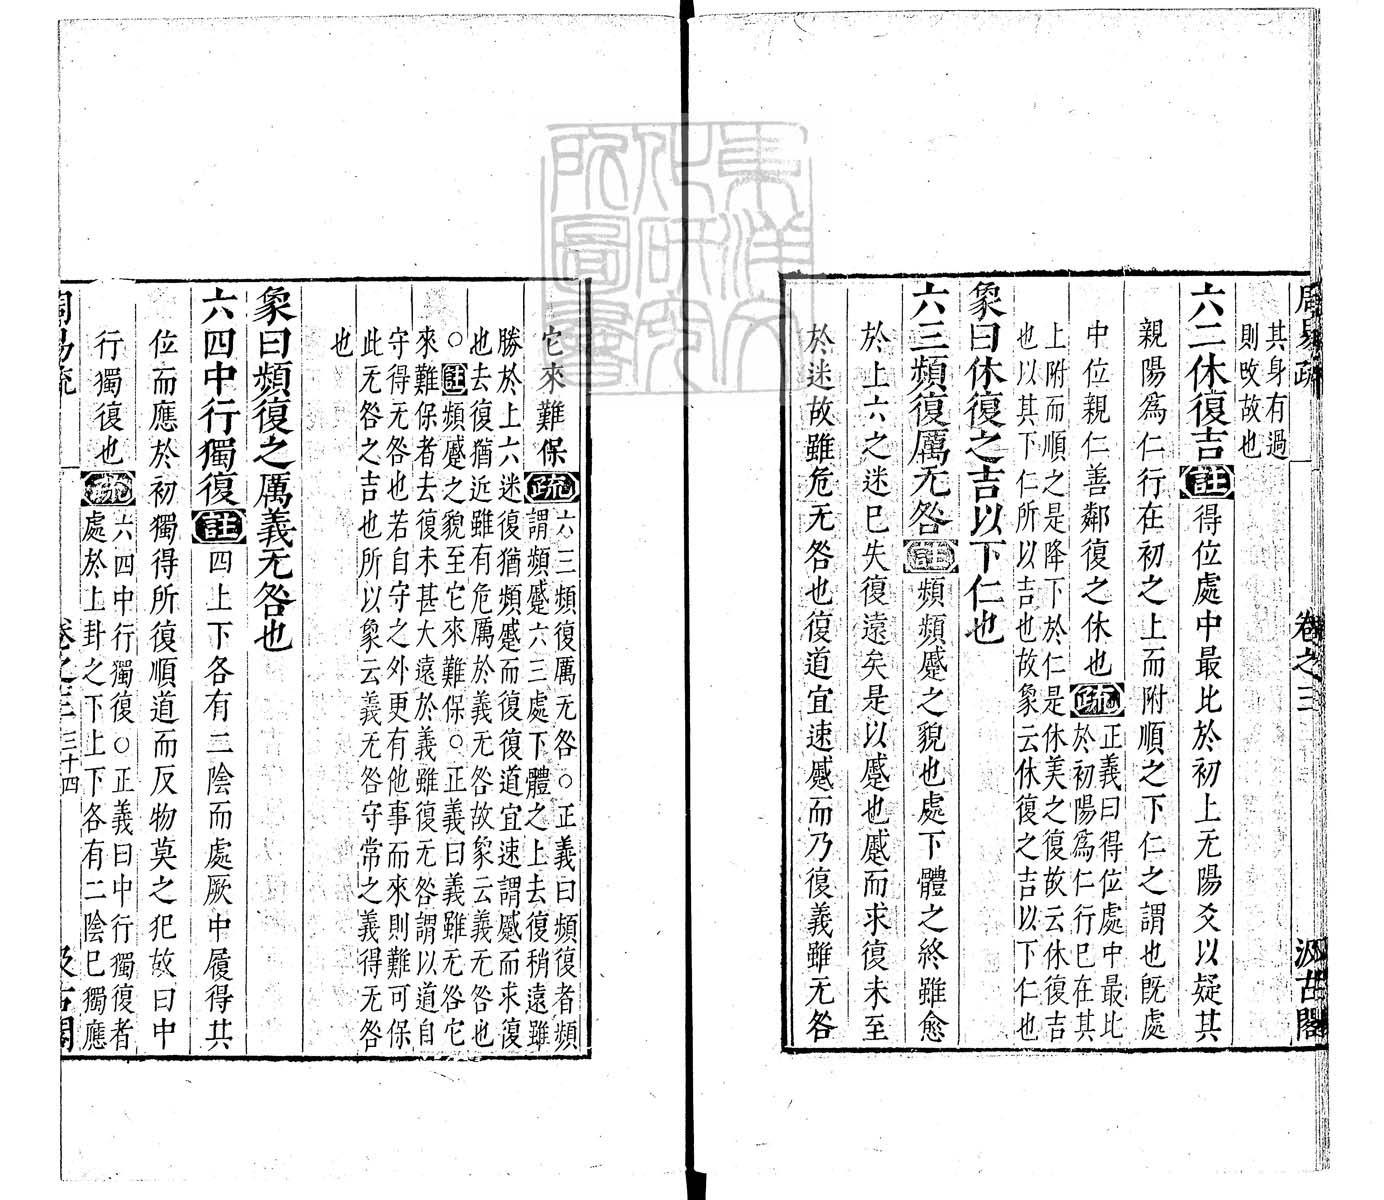 周易疏 卷之三 汲古閣
其身有過
則改故也
六二休復吉註得位處中最比於初上无陽爻以疑其
親陽爲仁行在初之上而附順之下仁之謂也旣處
中位親仁善鄰復之休也疏正義曰得位處中最比
於初陽爲仁行巳在其
上附而順之是降下於仁是休美之復故云休復吉
也以其下仁所以吉也故象云休復之吉以下仁也
象曰休復之吉以下仁也
六三頻復厲无咎註頻頻蹙之貌也處下體之終雖愈
於上六之迷巳失復遠矣是以蹙也蹙而求復未至
於迷故雖危无咎也復道宜速蹙而乃復義雖无咎
它來難保疏六三頻復厲无咎○正義曰頻復者頻
謂頻蹙六三處下體之上去復稍遠雖
勝於上六迷復猶頻蹙而復復道宜速謂蹙而求復
也去復猶近雖有危厲於義无咎故象云義无咎也
○註頻蹙之貌至它來難保○正義曰義雖无咎它
來難保者去復未甚大遠於義雖復无咎謂以道自
守得无咎也若自守之外更有他事而來則難可保
此无咎之吉也所以象云義无咎守常之義得无咎
也
象曰頻復之厲義无咎也
六四中行獨復註四上下各有二陰而處厥中履得其
位而應於初獨得所復順道而反物莫之犯故曰中
行獨復也疏六四中行獨復○正義曰中行獨復者
處於上卦之下上下各有二陰巳獨應
周易疏 卷之三 三十四 汲古閣
東洋文化研究所圖書